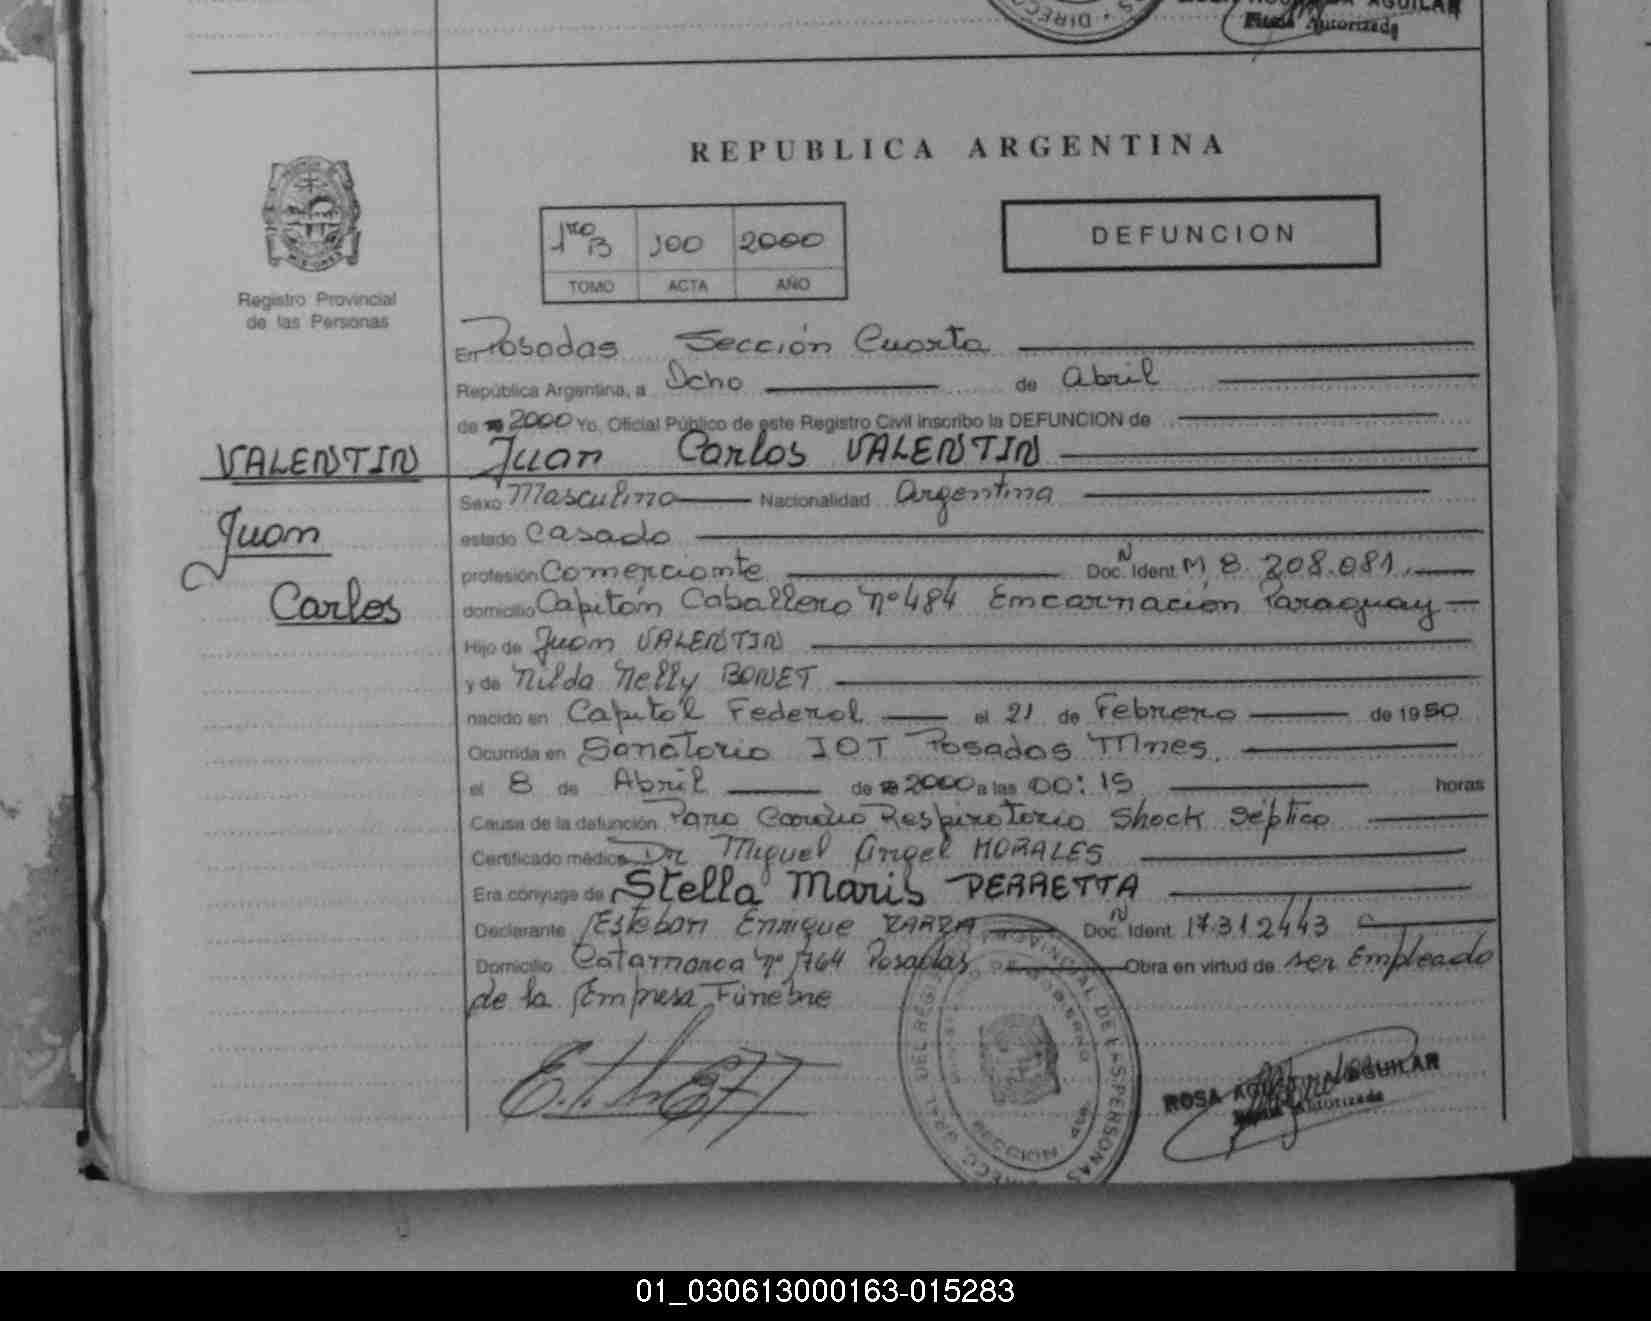 AGUILAR
Firma Autorizada
REPUBLICA ARGENTINA
1ro B 100 2000
TOMO ACTA AÑO
DEFUNCION
MISIONES
Registro Provincial
de las Personas
En Posadas Sección Cuarta
República Argentina, a Ocho de Abril
de 2000 Yo, Oficial Público de este Registro Civil inscribo la DEFUNCION de
VALENTIN
Juan
Carlos
Juan Carlos VALENTIN
Sexo Masculino Nacionalidad Argentina
estado Casado
profesión Comerciante Doc. Ident. M 8.208.081
domicilio Capitán Caballero nº 484 Encarnación Paraguay
Hijo de Juan VALENTIN
y de Nilda Nelly BONET
nacido en Capital Federal el 21 de Febrero de 1950
Ocurrida en Sanatorio IOT Posadas Mnes.
el 8 de Abril de 2000 a las 00:15 horas
Causa de la defunción Paro Cardio Respiratorio Shock Séptico
Certificado médico Dr Miguel Angel MORALES
Era cónyuge de Stella Maris PERRETTA
Declarante Esteban Enrique Doc. Ident. 17.312.443
Domicilio Catamarca nº 1764 Posadas Obra en virtud de ser Empleado
de la Empresa Fúnebre
ROSA AGUILAR
Firma Autorizada
01_030613000163-015283